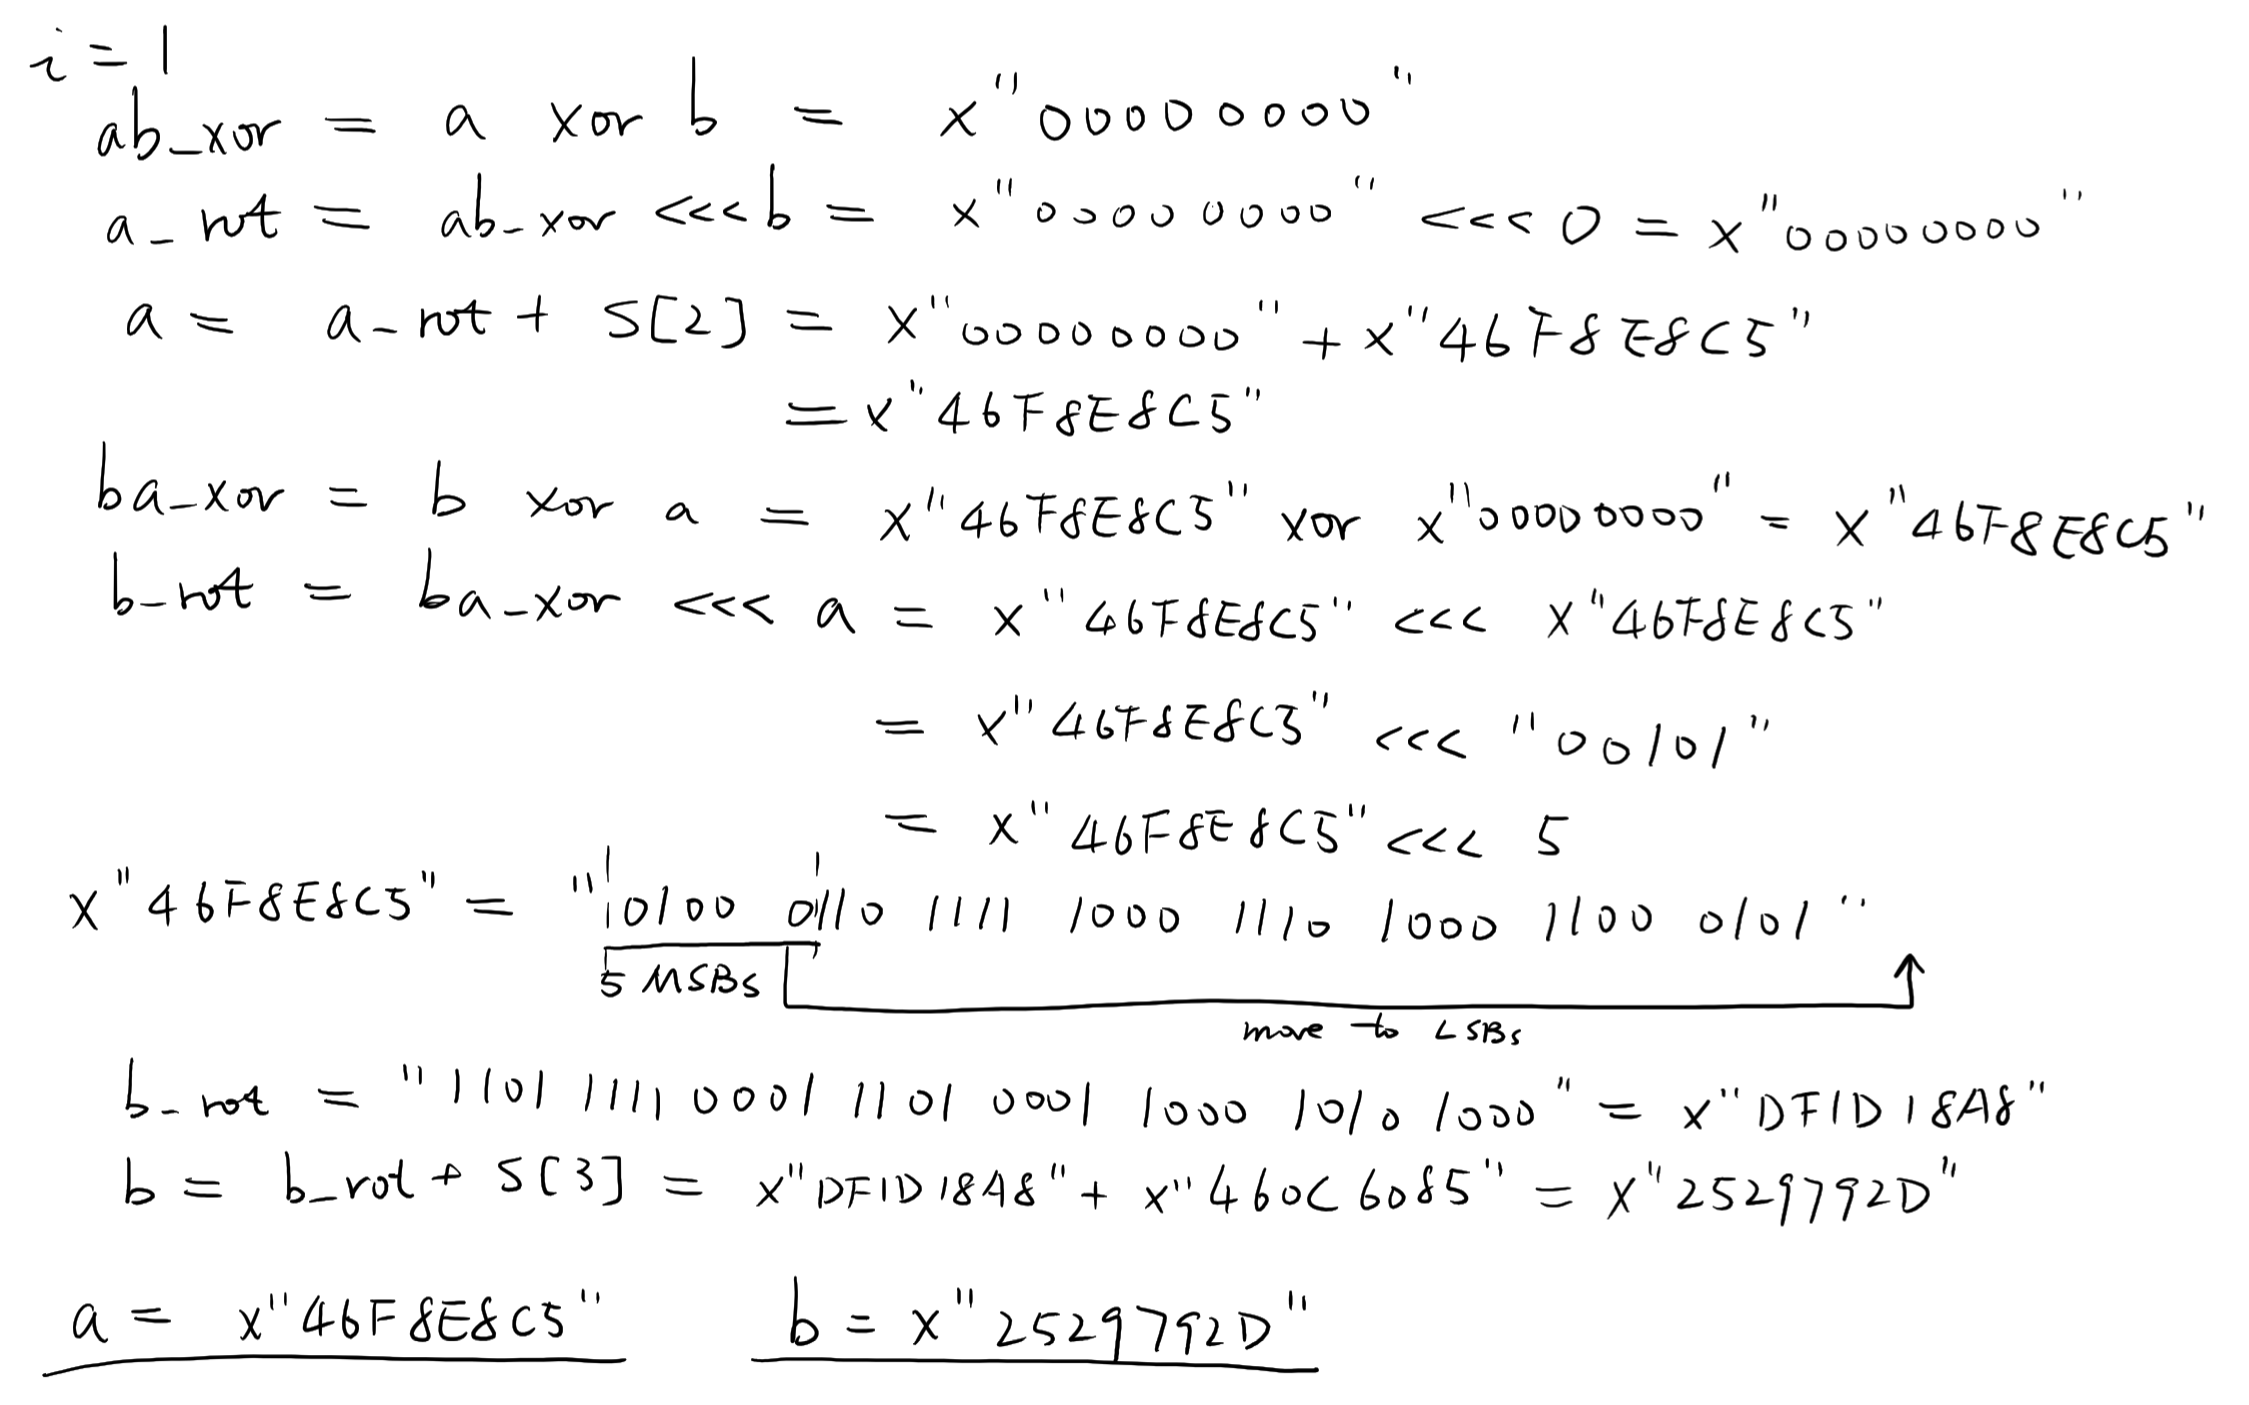 i = 1
ab_xor = a xor b = x"00000000"
a_rot = ab_xor <<< b = x"00000000" <<< 0 = x"00000000"
a = a_rot + S[2] = x"00000000" + x"46F8E8C5"
= x"46F8E8C5"
ba_xor = b xor a = x"46F8E8C5" xor x"00000000" = x"46F8E8C5"
b_rot = ba_xor <<< a = x"46F8E8C5" <<< x"46F8E8C5"
= x"46F8E8C5" <<< "00101"
= x"46F8E8C5" <<< 5
x"46F8E8C5" = "0100 0110 1111 1000 1110 1000 1100 0101"
5 MSBs
move to LSBs
b_rot = "1101 1111 0001 1101 0001 1000 1010 1000" = x"DF1D18A8"
b = b_rot + S[3] = x"DF1D18A8" + x"460C6085" = x"2529792D"
a = x"46F8E8C5" b = x"2529792D"